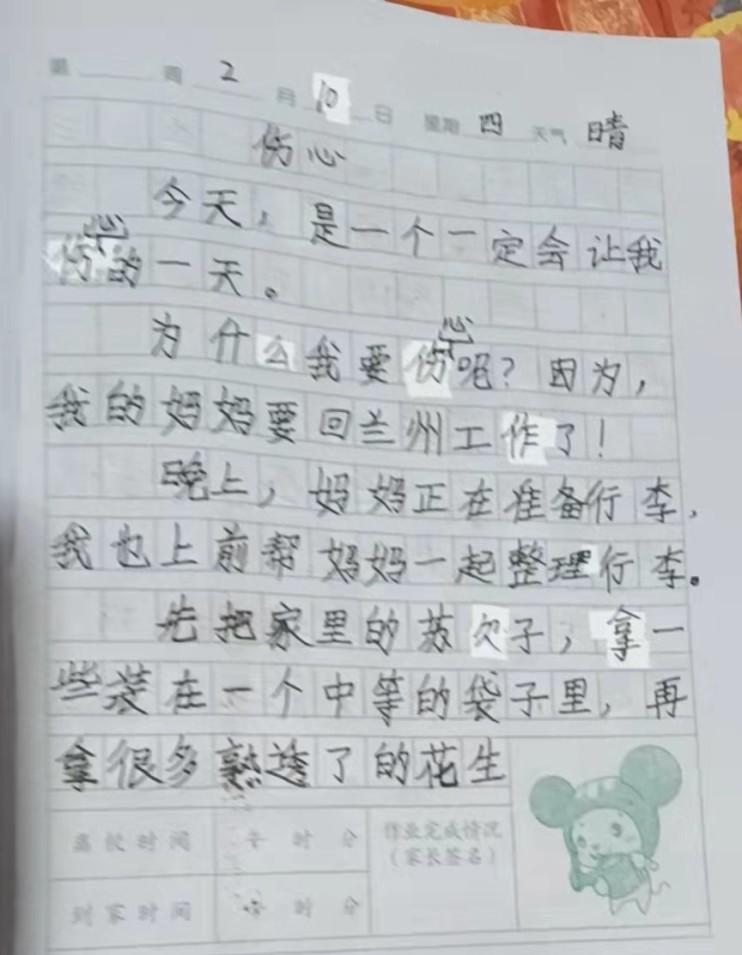 第 周 2月10日 星期四 天气晴
伤心
今天，是一个一定会让我
伤心的一天。
为什么我要伤心呢？因为，
我的妈妈要回兰州工作了！
晚上，妈妈正在准备行李，
我也上前帮妈妈一起整理行李。
先把家里的苏欠子，拿一
些装在一个中等的袋子里，再
拿很多熟透了的花生
离校时间 午 时 分 作业完成情况
（家长签名）
到家时间 午 时 分